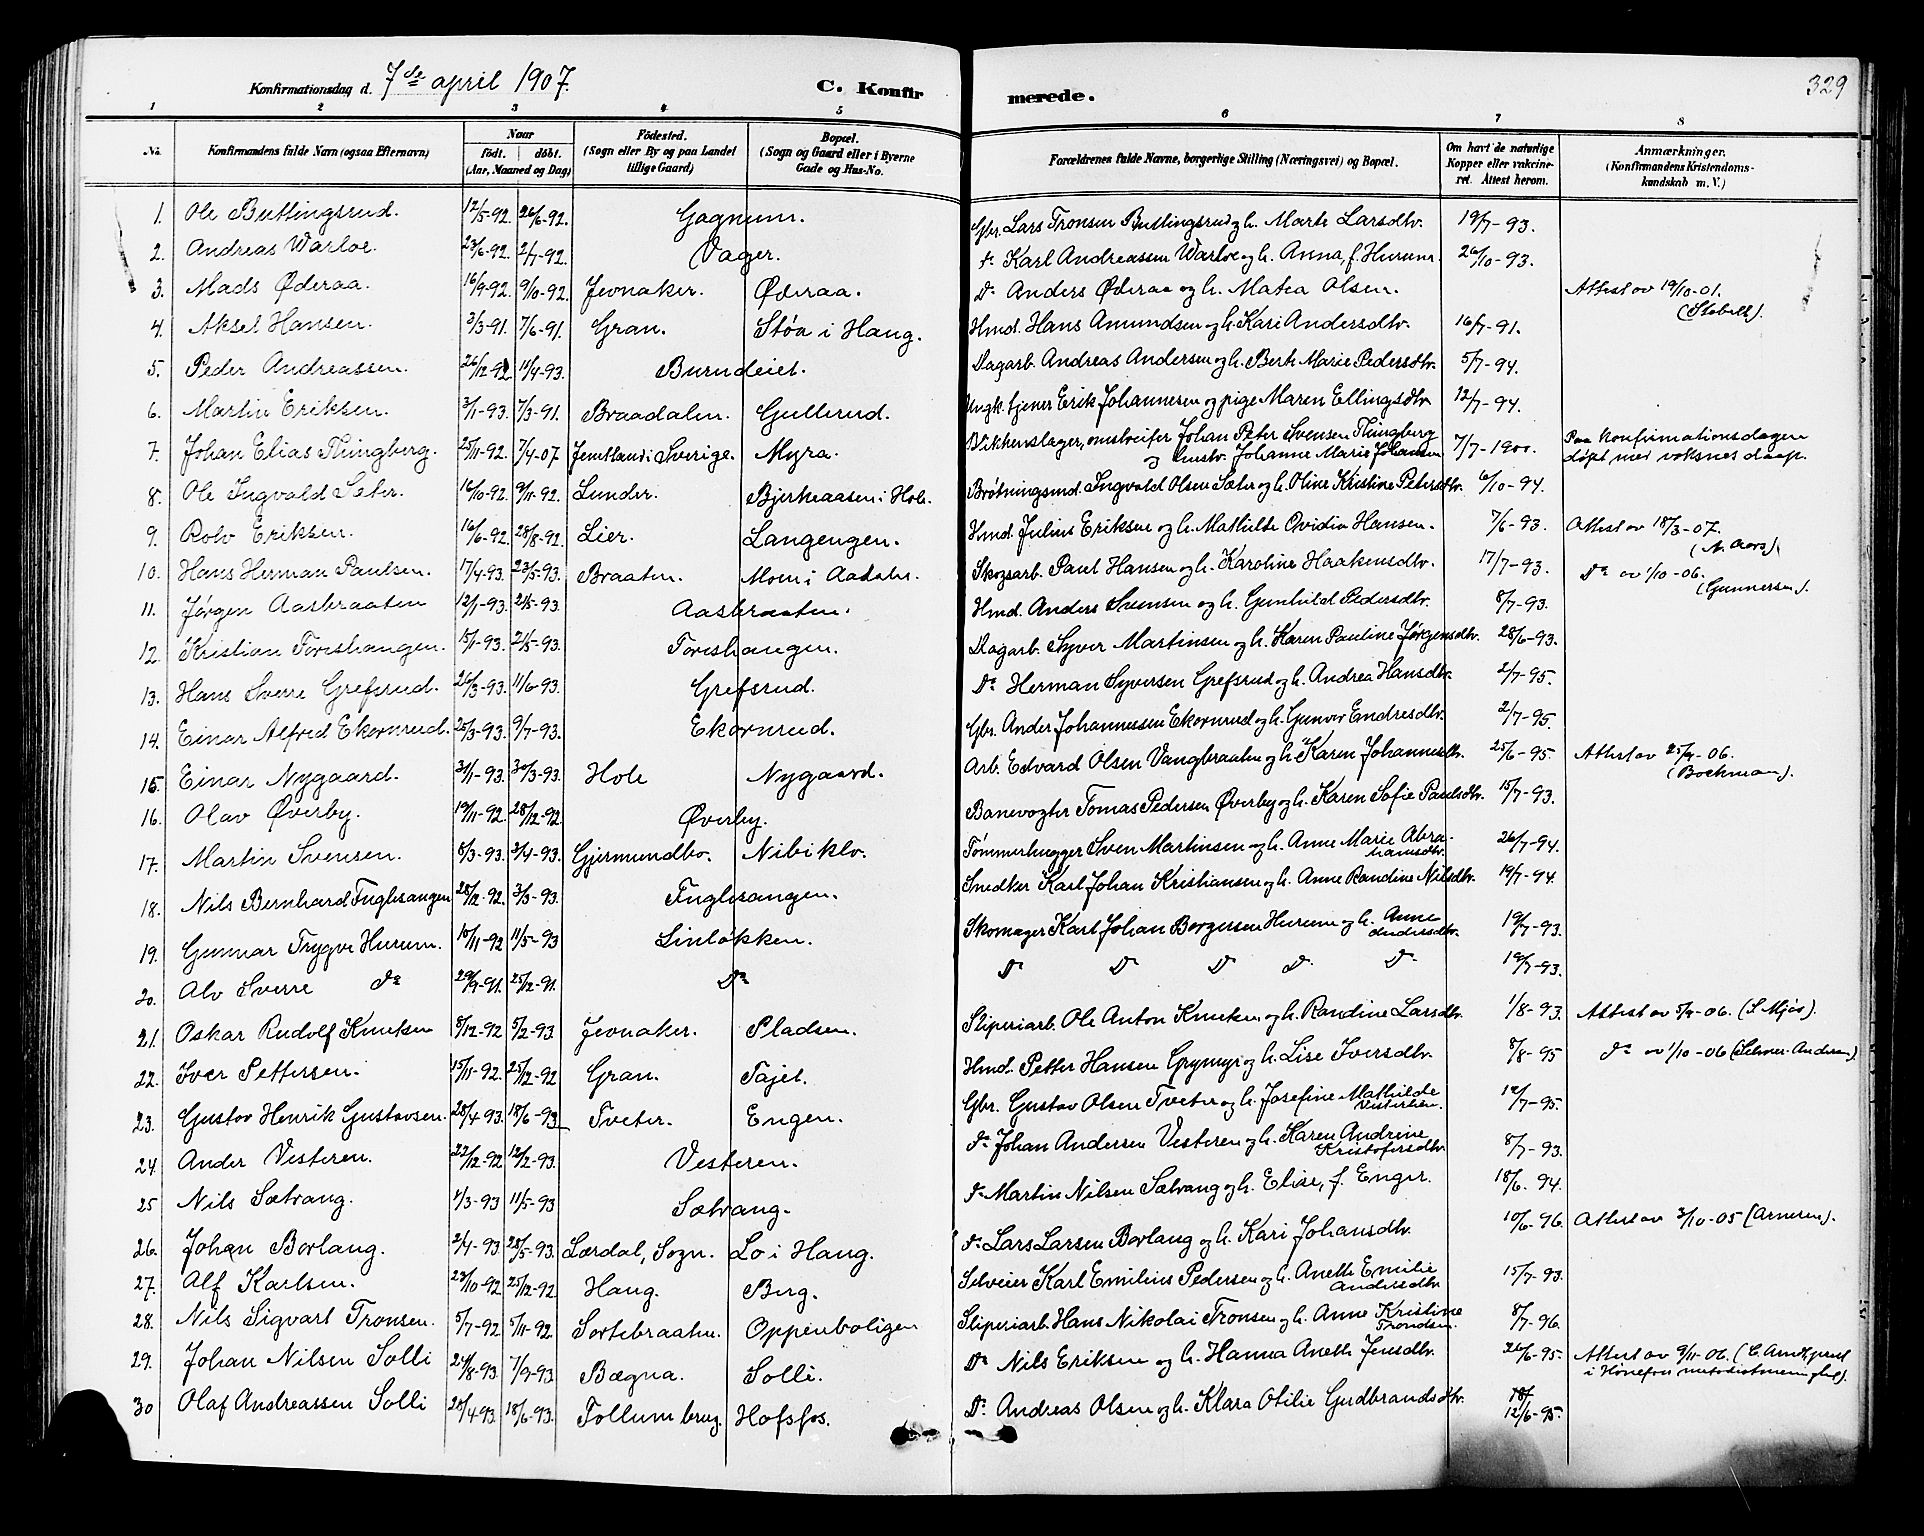 Konfirmationsdag d. 7de april 1907. C. Konfirmerede. 329
1 2 3 4 5 6 7 8
No. Konfirmandens fulde Navn (ogsaa Efternavn) Naar født. døbt. (Aar, Maaned og Dag) Fødested. (Sogn eller By og paa Landet tillige Gaard) Bopæl. (Sogn og Gaard eller i Byerne Gade og Hus-No. Forældrenes fulde Navne, borgerlige Stilling (Næringsvei) og Bopæl. Om havt de naturlige Kopper eller vakcineret. Attest herom. Anmærkninger. (Konfirmandens Kristendomskundskab m. V.)
1. Ole Buttingsrud. 12/5-92. 26/6-92. Gagnum. Gbr. Lars Tronsen Buttingsrud og h. Marte Larsdtr. 19/7-93.
2. Andreas Warloe. 23/6-92. 2/7-92. Vager. d. Karl Andreassen Warloe og h. Anna, f. Hurum. 26/10-93.
3. Mads Øderaa. 16/9-92. 9/10-92. Jevnaker. Øderaa. Do Anders Øderaa og h. Matea Olsen. Attest av 19/10-01. (Stabell).
4. Aksel Hansen. 3/3-91. 7/6-91. Gran. Støa i Haug. Hmd. Hans Amundsen og h. Kari Andersdtr. 16/7-91.
5. Peder Andreassen. 26/12-92. 11/4-93. Burudeiet. Dagarb. Andreas Andersen og h. Berte Marie Pedersdtr. 5/7-94.
6. Martin Eriksen. 3/1-93. 7/3-91. Braadalen. Gullerud. Ungk. tjener Erik Johannesen og pige Maren Ellingsdtr. 12/7-94.
7. Johan Elias Thingberg. 25/11-92. 7/4-07. Jemtland i Sverige. Myra. Blikkenslager, omstreifer Johan Peter Svensen Thingberg og hustr. Johanne Marie Johansen 7/7-1900. Paa konfirmationsdagen døpt med voksnes daap.
8. Ole Ingvald Sæter. 16/10-92. 9/11-92. Lunder. Bjerkeaasen i Hole. Brøtningsmd. Ingvald Olsen Sæter og h. Oline Kristine Petersdtr. 6/10-94.
9. Rolv Eriksen. 16/6-92. 28/8-92. Lier. Langengen. Hmd. Julius Eriksen og h. Mathilde Ovidia Hansen. 7/6-93. Attest av 18/3-07. (N. Aars)
10. Hans Herman Paulsen. 17/4-93. 23/5-93. Braaten. Moen i Aadalen. Skogsarb. Paul Hansen og h. Karoline Haakensdtr. 17/7-93. Do av 1/10-06. (Gunnersen).
11. Jørgen Aasbraaten 12/1-93. 21/5-93. Aasbraaten. Hmd. Anders Svensen og h. Gunhild Pedersdtr. 8/7-93.
12. Kristian Toreshaugen. 15/1-93. 21/5-93. Toreshaugen. Dagarb. Syver Martinsen og h. Karen Pauline Jørgensdtr. 28/6-93.
13. Hans Sverre Grefsrud. 26/3-93. 11/6-93. Grefsrud. Do Herman Syversen Grefsrud og h. Andrea Hansdtr. 2/7-95.
14. Einar Alfred Ekornrud. 25/3-93. 9/7-93. Ekornrud. Gbr. Ander Johannessen Ekornrud og h. Gunvor Endresdtr. 2/7-95.
15. Einar Nygaard. 31/1-93. 30/3-93. Hole Nygaard. Arb. Edvard Olsen Vangbraaten og h. Karen Johannesdtr. 25/6-95. Attest av 25/9-06. (Bockman).
16. Olav Øverby. 19/11-92. 28/12-92. Øverby. Banevogter Tomas Pedersen Øverby og h. Karen Sofie Paulsdtr. 15/7-93.
17. Martin Svensen. 8/3-93. 3/4-93. Gjermundbo. Nibiklo. Tømmerhugger Sven Martinsen og h. Anne Marie Abrahamsdtr. 26/7-94.
18. Nils Bernhard Fuglesangen 28/12-92. 3/3-93. Fuglesangen. Snedker Karl Johan Kristiansen og h. Anne Randine Nilsdtr. 19/7-94.
19. Gunnar Trygve Hurum. 10/11-92 11/5-93 Linløkken. Skomager Karl Johan Borgersen Hurum og h. Anne Andersdtr. 19/7-93.
20. Alv Sverre do 29/9-91. 25/12-91. Do D D D D D 19/7-93.
21. Oskar Rudolf Knutsen 8/12-92 5/2-93. Jevnaker. Pladsen. Sliperiarb. Ole Anton Knutsen og h. Randine Larsdtr. 1/8-93. Attest av 5/9-06. (S. Mjøs).
22. Iver Pettersen. 15/11-92. 25/12-92 Gran. Tajet. Hmd. Petter Hansen Grymyr og h. Lise Iversdtr. 8/8-95 do av 1/10-06 (Selmer-Andersen)
23. Gustav Henrik Gustavsen. 28/4-93. 18/6-93 Tveter. Engen. Gbr. Gustav Olsen Tveter og h. Josefine Mathilde Vesteren. 12/7-95.
24. Ander Vesteren. 22/12-92 12/2-93. Vesteren. do Johan Andersen Vesteren og h. Karen Andrine Kristofersdtr. 8/7-93.
25 Nils Sætrang. 1/3-93 11/5-93 Sætrang. do Martin Nilsen Sætrang og h. Elise, f. Enger. 18/6-94.
26. Johan Borlaug. 2/4-93 28/5-93. Lærdal, Sogn. Lo i Haug. do Lars Larsen Borlaug og h. Kari Johansdtr. 10/6-96. Attest av 3/10-05 (Arnesen).
27. Alf Karlsen. 23/10-92 25/12-92 Haug. Berg. Selveier Karl Emilius Pedersen og h. Anette Emilie Andersdtr. 15/7-93.
28. Nils Sigvart Tronsen. 5/7-92 5/11-92. Sortebraaten. Oppenboligen Sliperiarb. Hans Nikolai Tronsen og h. Anne Kristine Trondsen. 8/7-96.
29. Johan Nilsen Solli 24/8-93. 7/9-93. Bægna. Solli. Do Nils Eriksen og h. Hanna Anette Jensdtr. 26/6-95. Attest av 9/11-06. i Hønefos metodistmenighed).
30 Olaf Andreassen Solli 20/4-93. 18/6-93. Follum brug. Hofsfos. D. Andreas Olsen og h. Klara Otilie Gudbrandsdtr. 12/6-95.